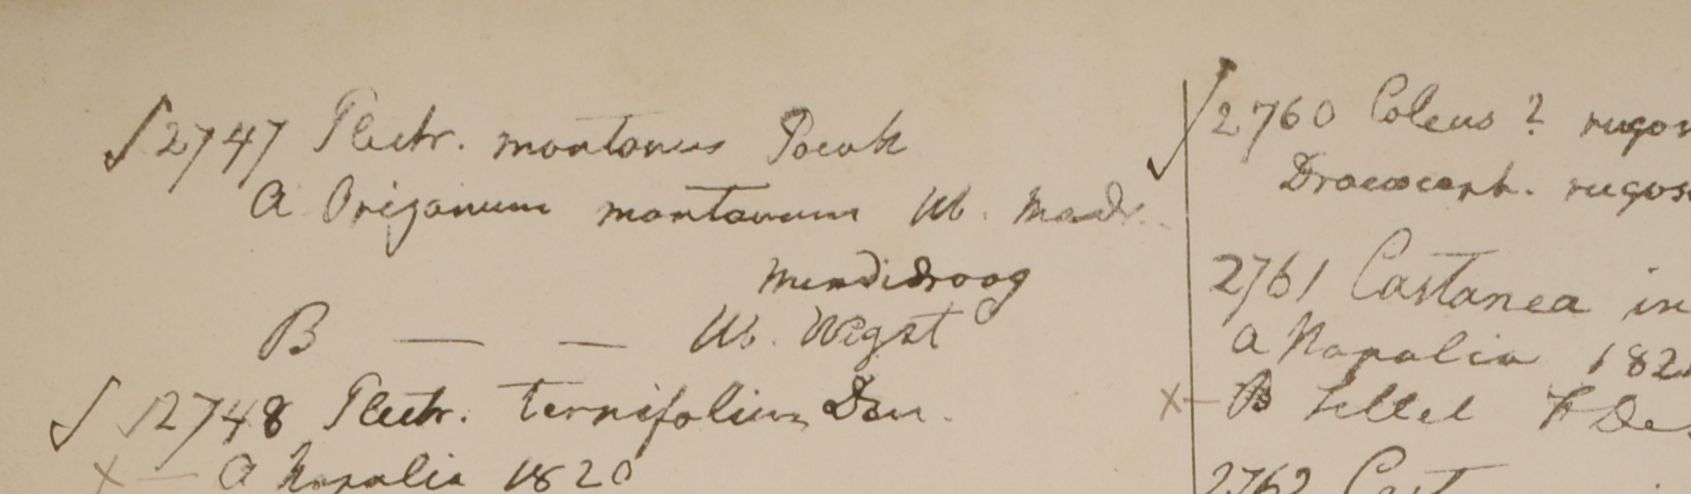 2747 Plectr. montanus
A Origanum montanum Hb. Madr.
Nundidroog
B — — Hb. Wight
2748 Plectr. ternifolium Don.
A Napalia 1820
2760 Coleus ? rugos
rugos
2761 Castanea in
A Napalia 182
B Sillet
2762 Cast